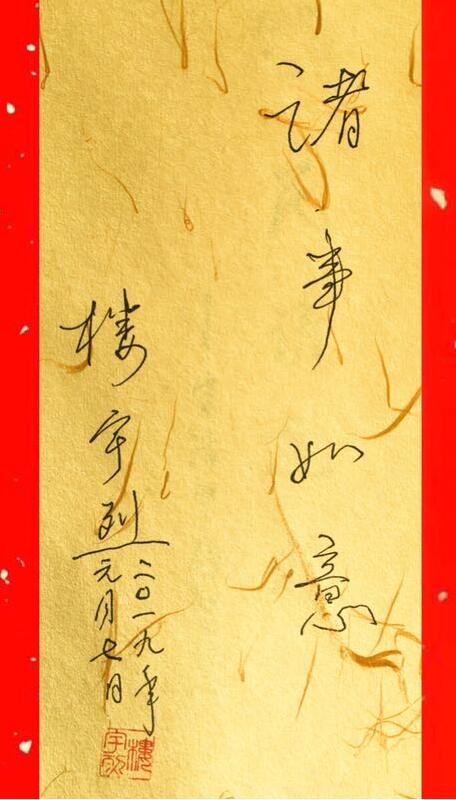 諸事如意
楼宇列
二〇一九年
元月七日
樓宇烈